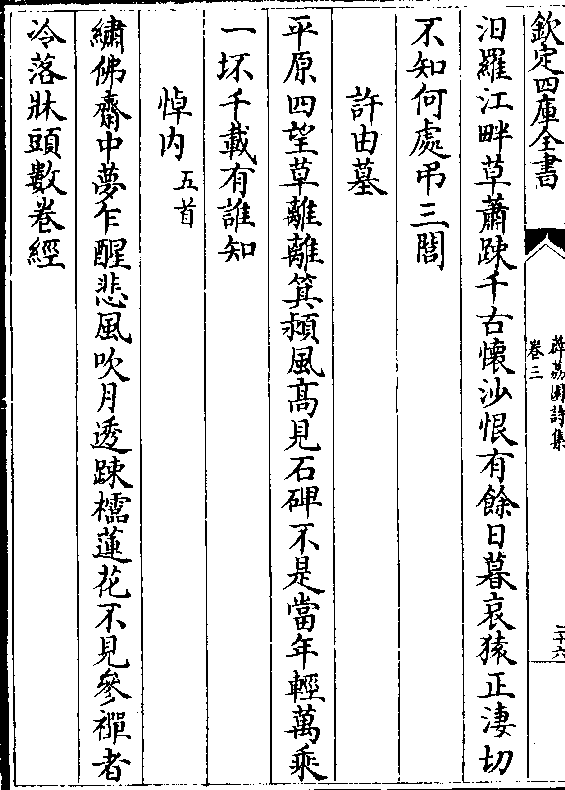 欽定四庫全書
薜荔園詩集
卷三
二十六
汨羅江畔草蕭踈千古懷沙恨有餘日暮哀猿正淒切
不知何處吊三閭
許由墓
平原四望草離離箕潁風高見石碑不是當年輕萬乘
一坏千載有誰知
悼内五首
繡佛齋中夢乍醒悲風吹月透踈櫺蓮花不見參禪者
冷落牀頭數卷經